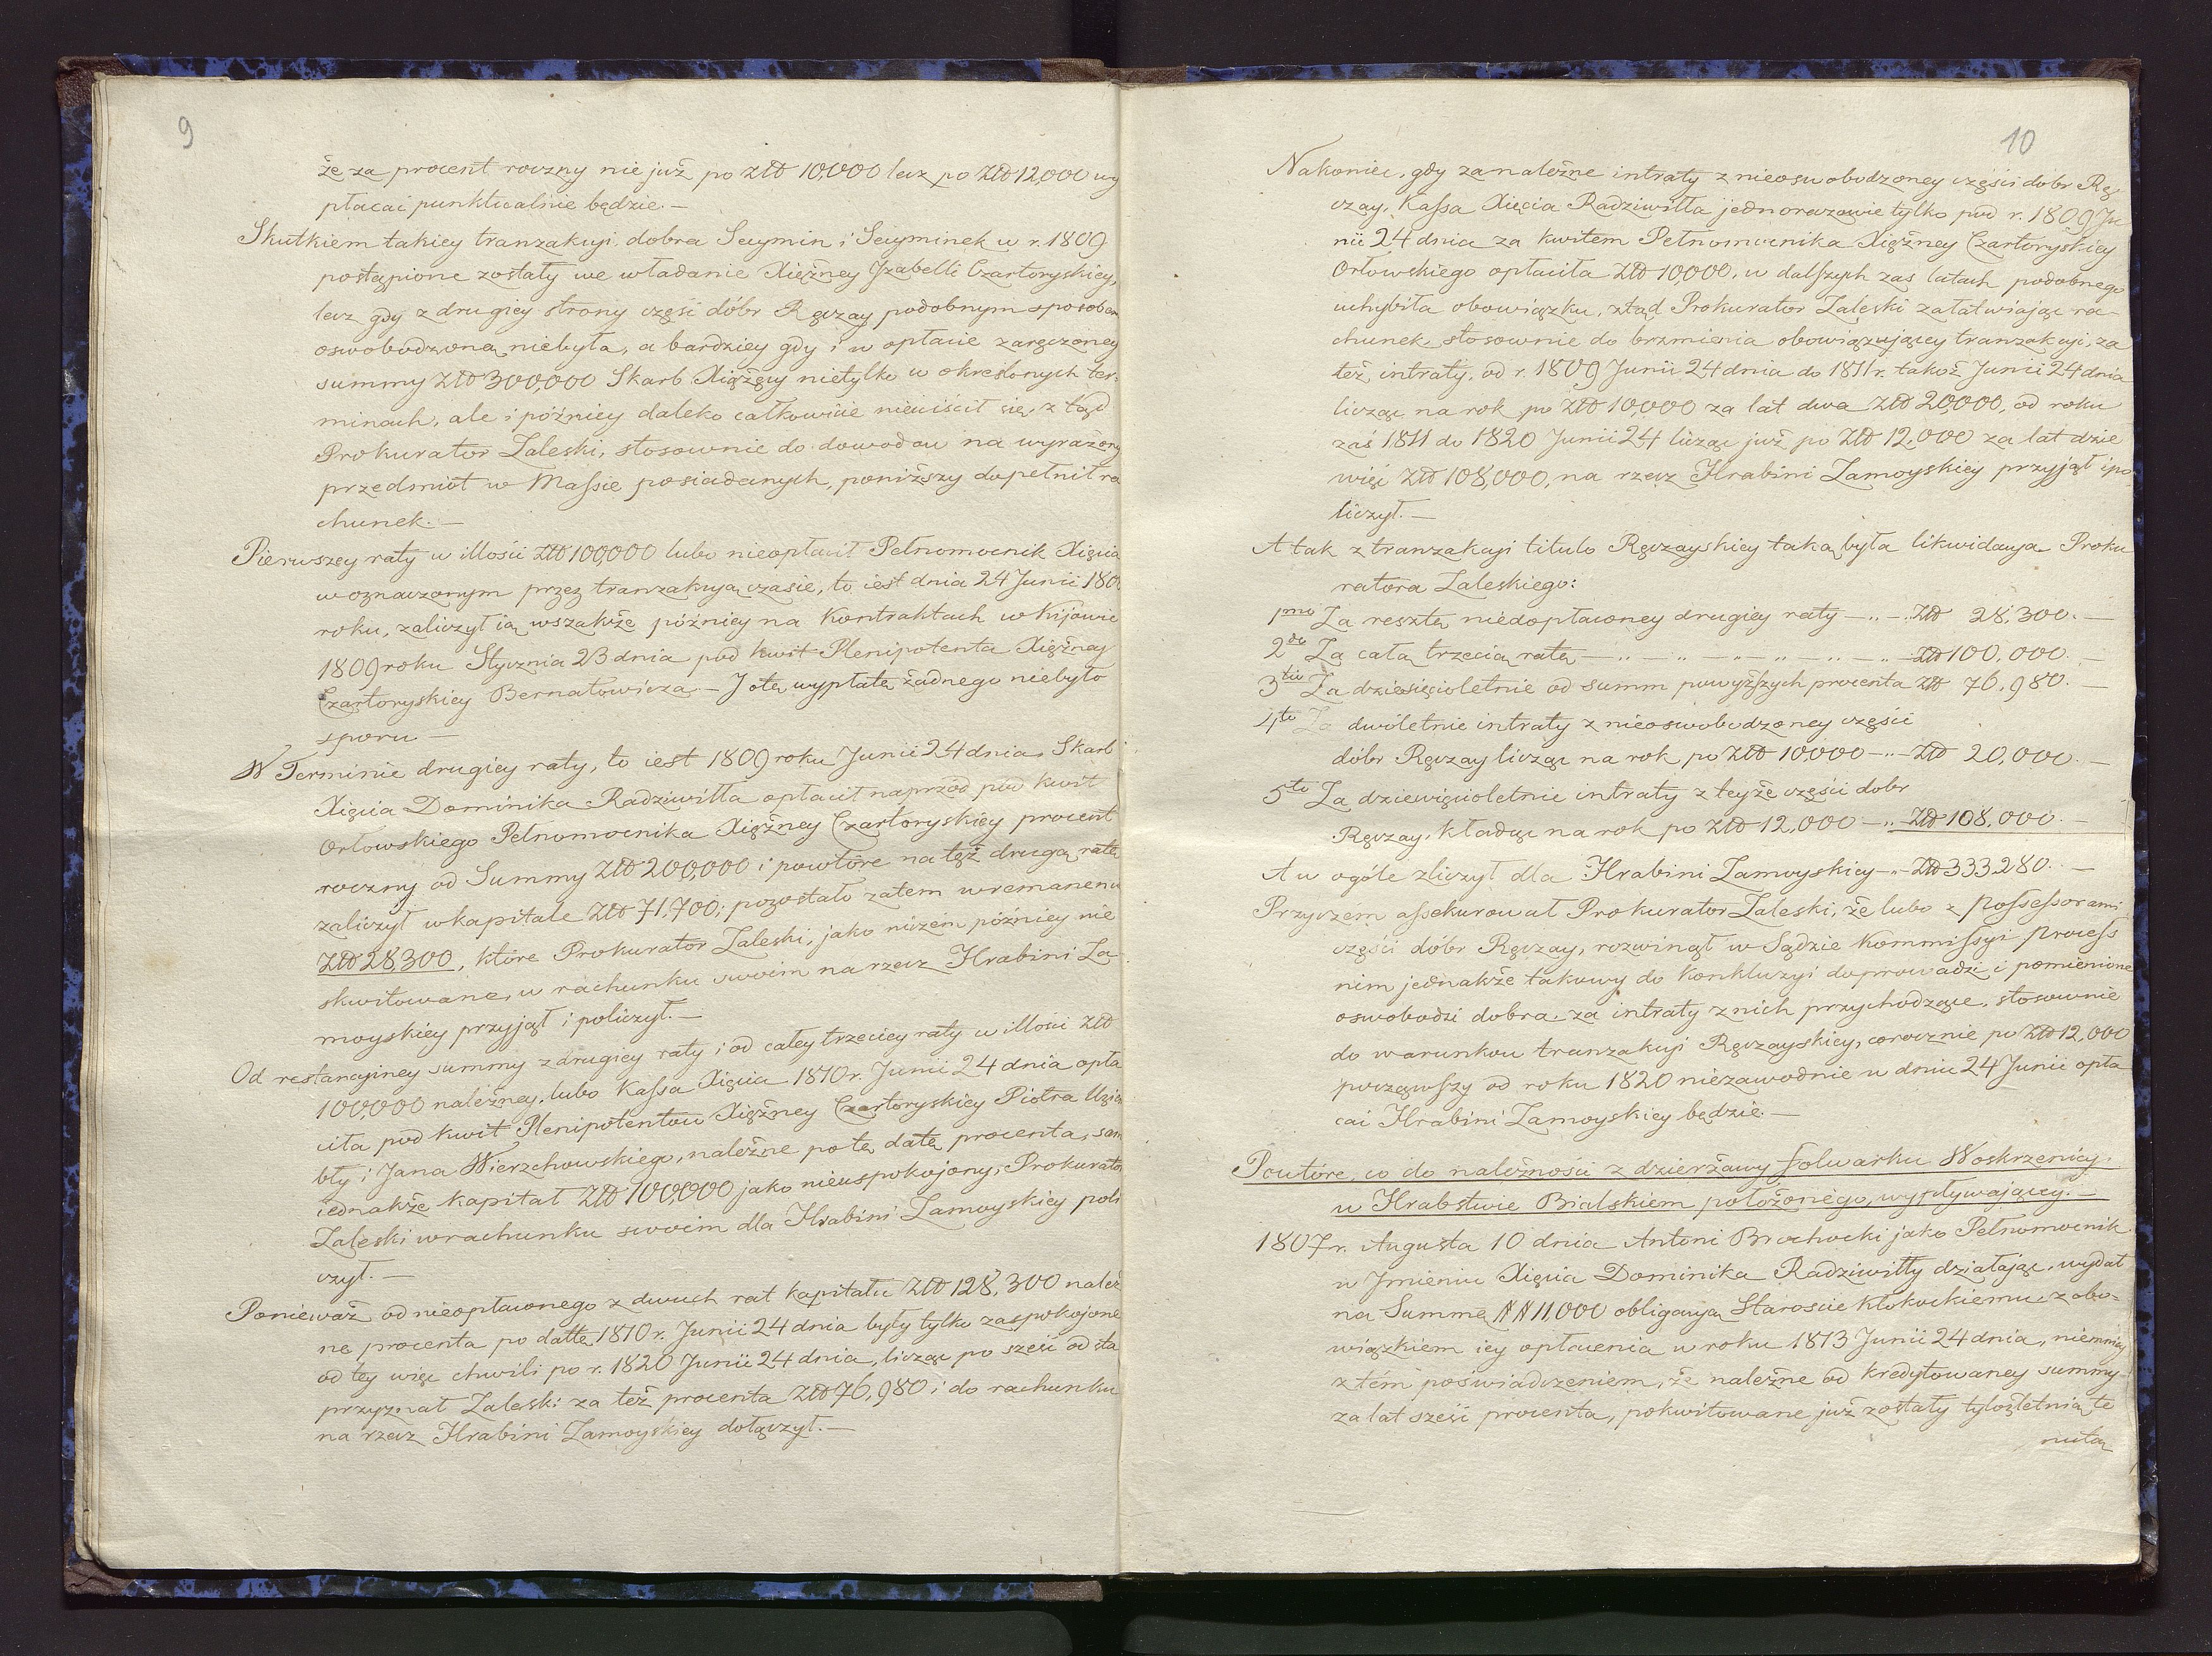 9
że za procent roczny nie już po Złł 10,000 lecz po Złł 12,000 wy
płacać punktualnie będzie. —
Skutkiem takiey tranzakcyi dobra Seymin i Seyminek w r. 1809
postąpione zostały we władanie Xiężney Jzabelli Czartoryskiey,
lecz gdy z drugiey strony część dóbr Ręczay podobnym sposobem
oswobodzoną niebyła, a bardziey gdy i w opłacie zaręczoney
summy Złł 300,000 Skarb Xiążęcy nietylko w określonych ter-
minach, ale i późniey daleko całkowicie nieuiścił się, z tąd
Prokurator Zaleski, stosownie do dowodow na wyrażony
przedmiot w Massie posiadanych, poniższy dopełnił ra
chunek. —
Pierwszey raty w illości Złł 100,000 lubo nieopłacił Pełnomocnik Xięcia
w oznaczonym przez tranzakcyą czasie, to iest dnia 24 Junii 180
roku, zaliczył ią wszakże późniey na Kontraktach w Kijowie
1809 roku Stycznia 23 dnia pod kwit Plenipotenta Xiężney
Czartoryskiey Bernatowicza. — J o tę wypłatę żadnego niebyło
sporu. —
W Terminie drugiey raty, to iest 1809 roku Junii 24 dnia, Skarb
Xięcia Dominika Radziwiłła opłacił naprzód pod kwit
Orłowskiego Pełnomocnika Xiężney Czartoryskiey procent
roczny od Summy Złł 200,000 i powtóre na tęż drugą ratę
zaliczył w kapitale Złł 71,700; pozostało zatem w remanencie
Złł 28,300, które Prokurator Zaleski, jako niczem późniey nie
skwitowane, w rachunku swoim na rzecz Hrabini Za
moyskiey przyjął i policzył. —
Od restancyiney summy z drugiey raty i od całey trzeciey raty w illości Złł
100,000 należney, lubo Kassa Xięcia 1810 r. Junii 24 dnia opła
ciła pod kwit Plenipotentow Xiężney Czartoryskiey Piotra
bły i Jana Wierzchowskiego, należne po tę datę procenta, sam
iednakże kapitał Złł 100,000 jako nieuspokojony, Prokurator
Zaleski w rachunku swoim dla Hrabini Zamoyskiey poli
czył. —
Ponieważ od nieopłaconego z dwuch rat kapitału Złł 128,300 należ
ne procenta po dattę 1810 r. Junii 24 dnia były tylko zaspokojone
od tey więc chwili po r. 1820 Junii 24 dnia, licząc po sześć od sta
przyznał Zaleski za też procenta Złł 76,980 i do rachunku
na rzecz Hrabini Zamoyskiey dołączył. —
10
Nakoniec, gdy za należne intraty z nieoswobodzoney części dobr Rę
czay, Kassa Xięcia Radziwiłła jednorazowie tylko pod r. 1809 Ju
nii 24 dnia za kwitem Pełnomocnika Xiężney Czartoryskiey
Orłowskiego opłaciła Złł 10,000, w dalszych zas latach podobnego
uchybiła obowiązku, ztąd Prokurator Zaleski załatwiając ra-
chunek, stosownie do brzmienia obowiązującey tranzakcyi, za
też intraty, od r. 1809 Junii 24 dnia do 1811 r. także Junii 24 dnia
licząc na rok po Złł 10,000 za lat dwa Złł 20,000, od roku
zaś 1811 do 1820 Junii 24 licząc już po Złł 12,000 za lat dzie
więć Złł 108,000, na rzecz Hrabini Zamoyskiey przyjął i po
liczył. —
A tak z tranzakcyi titulo Ręczayskiey taką była likwidacya Proku
ratora Zaleskiego:
1mo Za resztę niedopłaconey drugiey raty —„—. Złł 28,300. —
2do Za całą trzecią ratę —„—„—„—„—„—„ Złł 100,000. —
3tio Za dziesięcioletnie od summ powyższych procenta Złł 76,980. —
4to Za dwóletnie intraty z nieoswobodzoney części
dóbr Ręczay licząc na rok po Złł 10,000 —„— Złł 20,000. —
5to Za dziewięcioletnie intraty z teyże części dobr
Ręczay, kładąc na rok po Złł 12,000 —„ Złł 108,000. —
A w ogóle zliczył dla Hrabini Zamoyskiey —„— Złł 333,280. —
Przyczem assekurował Prokurator Zaleski, że lubo z Possessorami
części dóbr Ręczay, rozwinął w Sądzie Kommissyi process
nim jednakże takowy do konkluzyi doprowadzi, i pomienione
oswobodzi dobra, za intraty z nich przychodzące, stosownie
do warunkow tranzakcyi Ręczayskiey, corocznie po Złł 12,000
począwszy od roku 1820 niezawodnie w dniu 24 Junii opła
cać Hrabini Zamoyskiey będzie. —
Powtóre, co do należności z dzierżawy folwarku Woskrzenicy
w Hrabstwie Bialskiem położonego, wypływającey. —
1807 r. Augusta 10 dnia Antoni Brochocki jako Pełnomocnik
w Jmieniu Xięcia Dominika Radziwiłły działając, wydał
na Summę ## 11,000 obligacyą Staroscie Kłokockiemu z obo-
wiązkiem iey opłacenia w roku 1813 Junii 24 dnia, niemniey
z tém poświadczeniem, że należne od kredytowaney summy
za lat sześć procenta, pokwitowane już zostały tyloletnią te
nutą